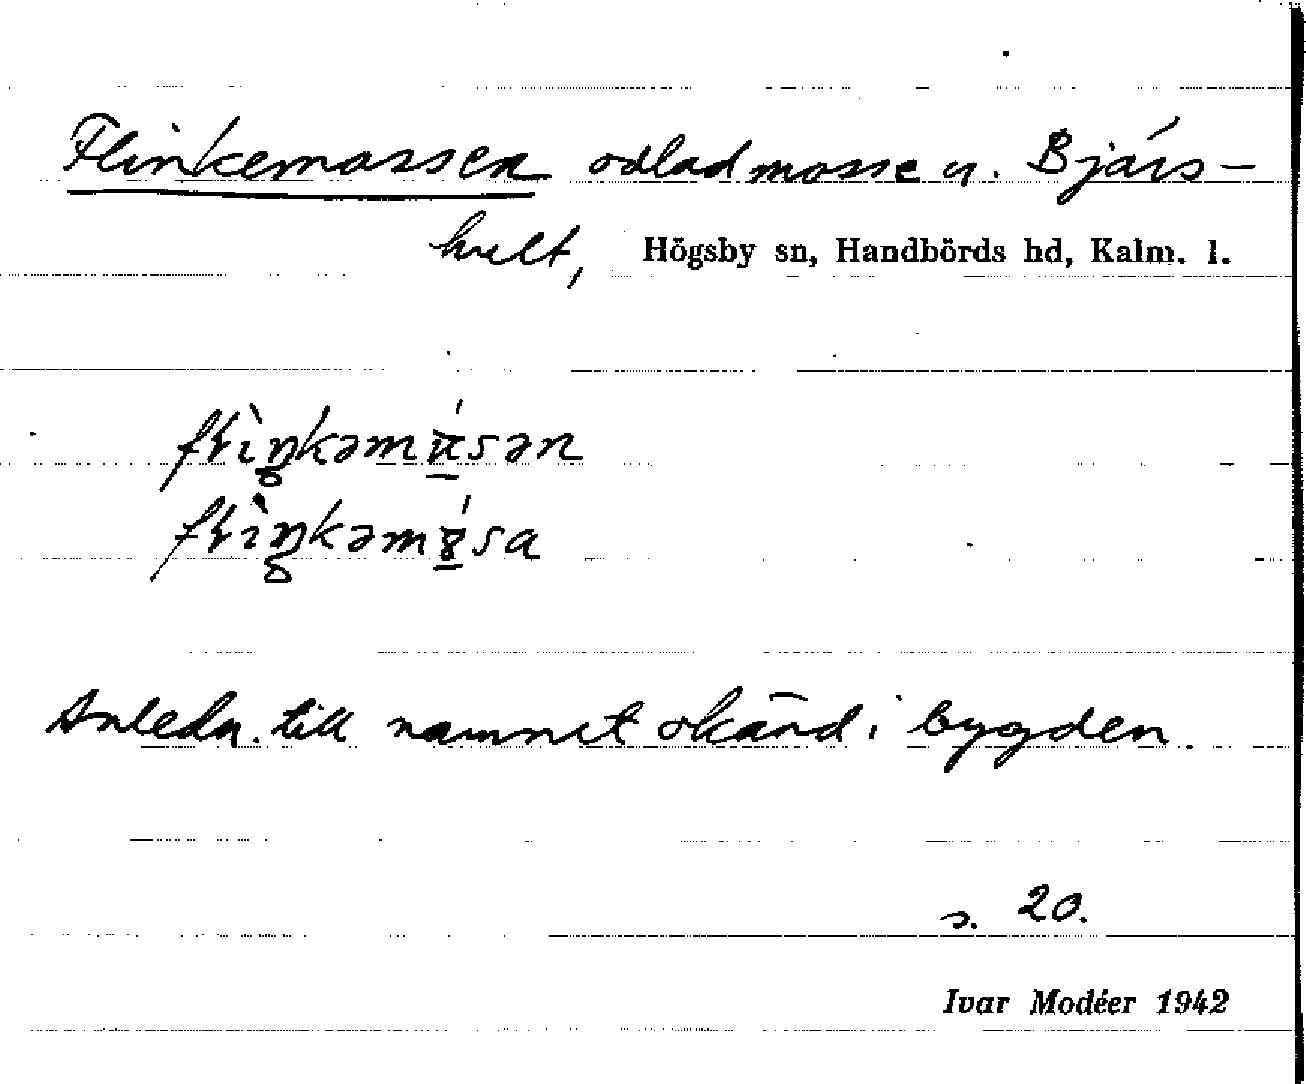 Flinkemossen odlad mosse u. Bjärs-
hult, Högsby sn, Handbörds hd, Kalm. l.
Anledn. till namnet okänd i bygden.
s. 20.
Ivar Modéer 1942